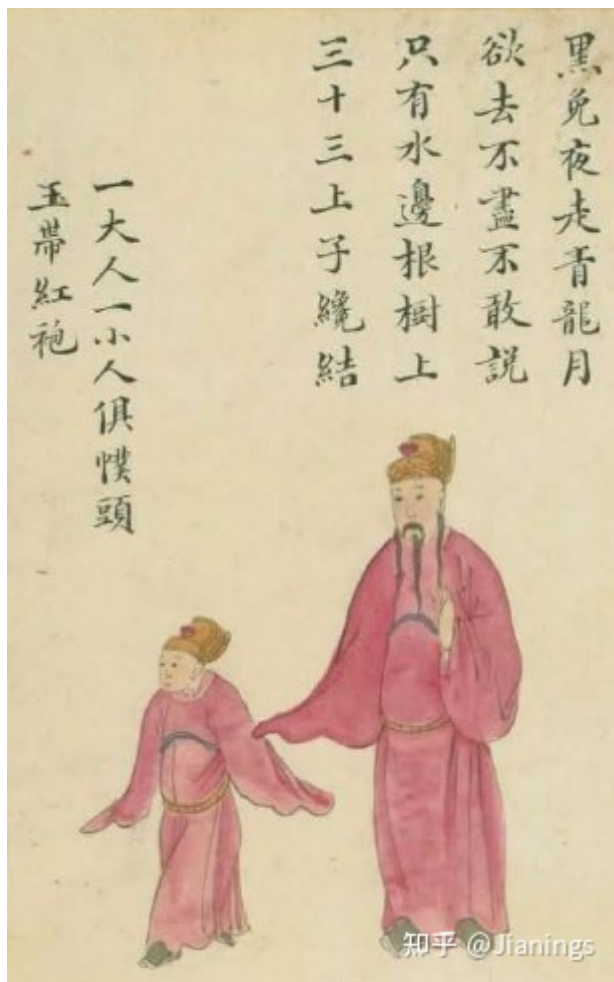 黑兔夜走青龍月
欲去不盡不敢説
只有水邊根樹上
三十三上子纔結
一大人一小人俱幞頭
玉帶紅袍
知乎 @Jianings